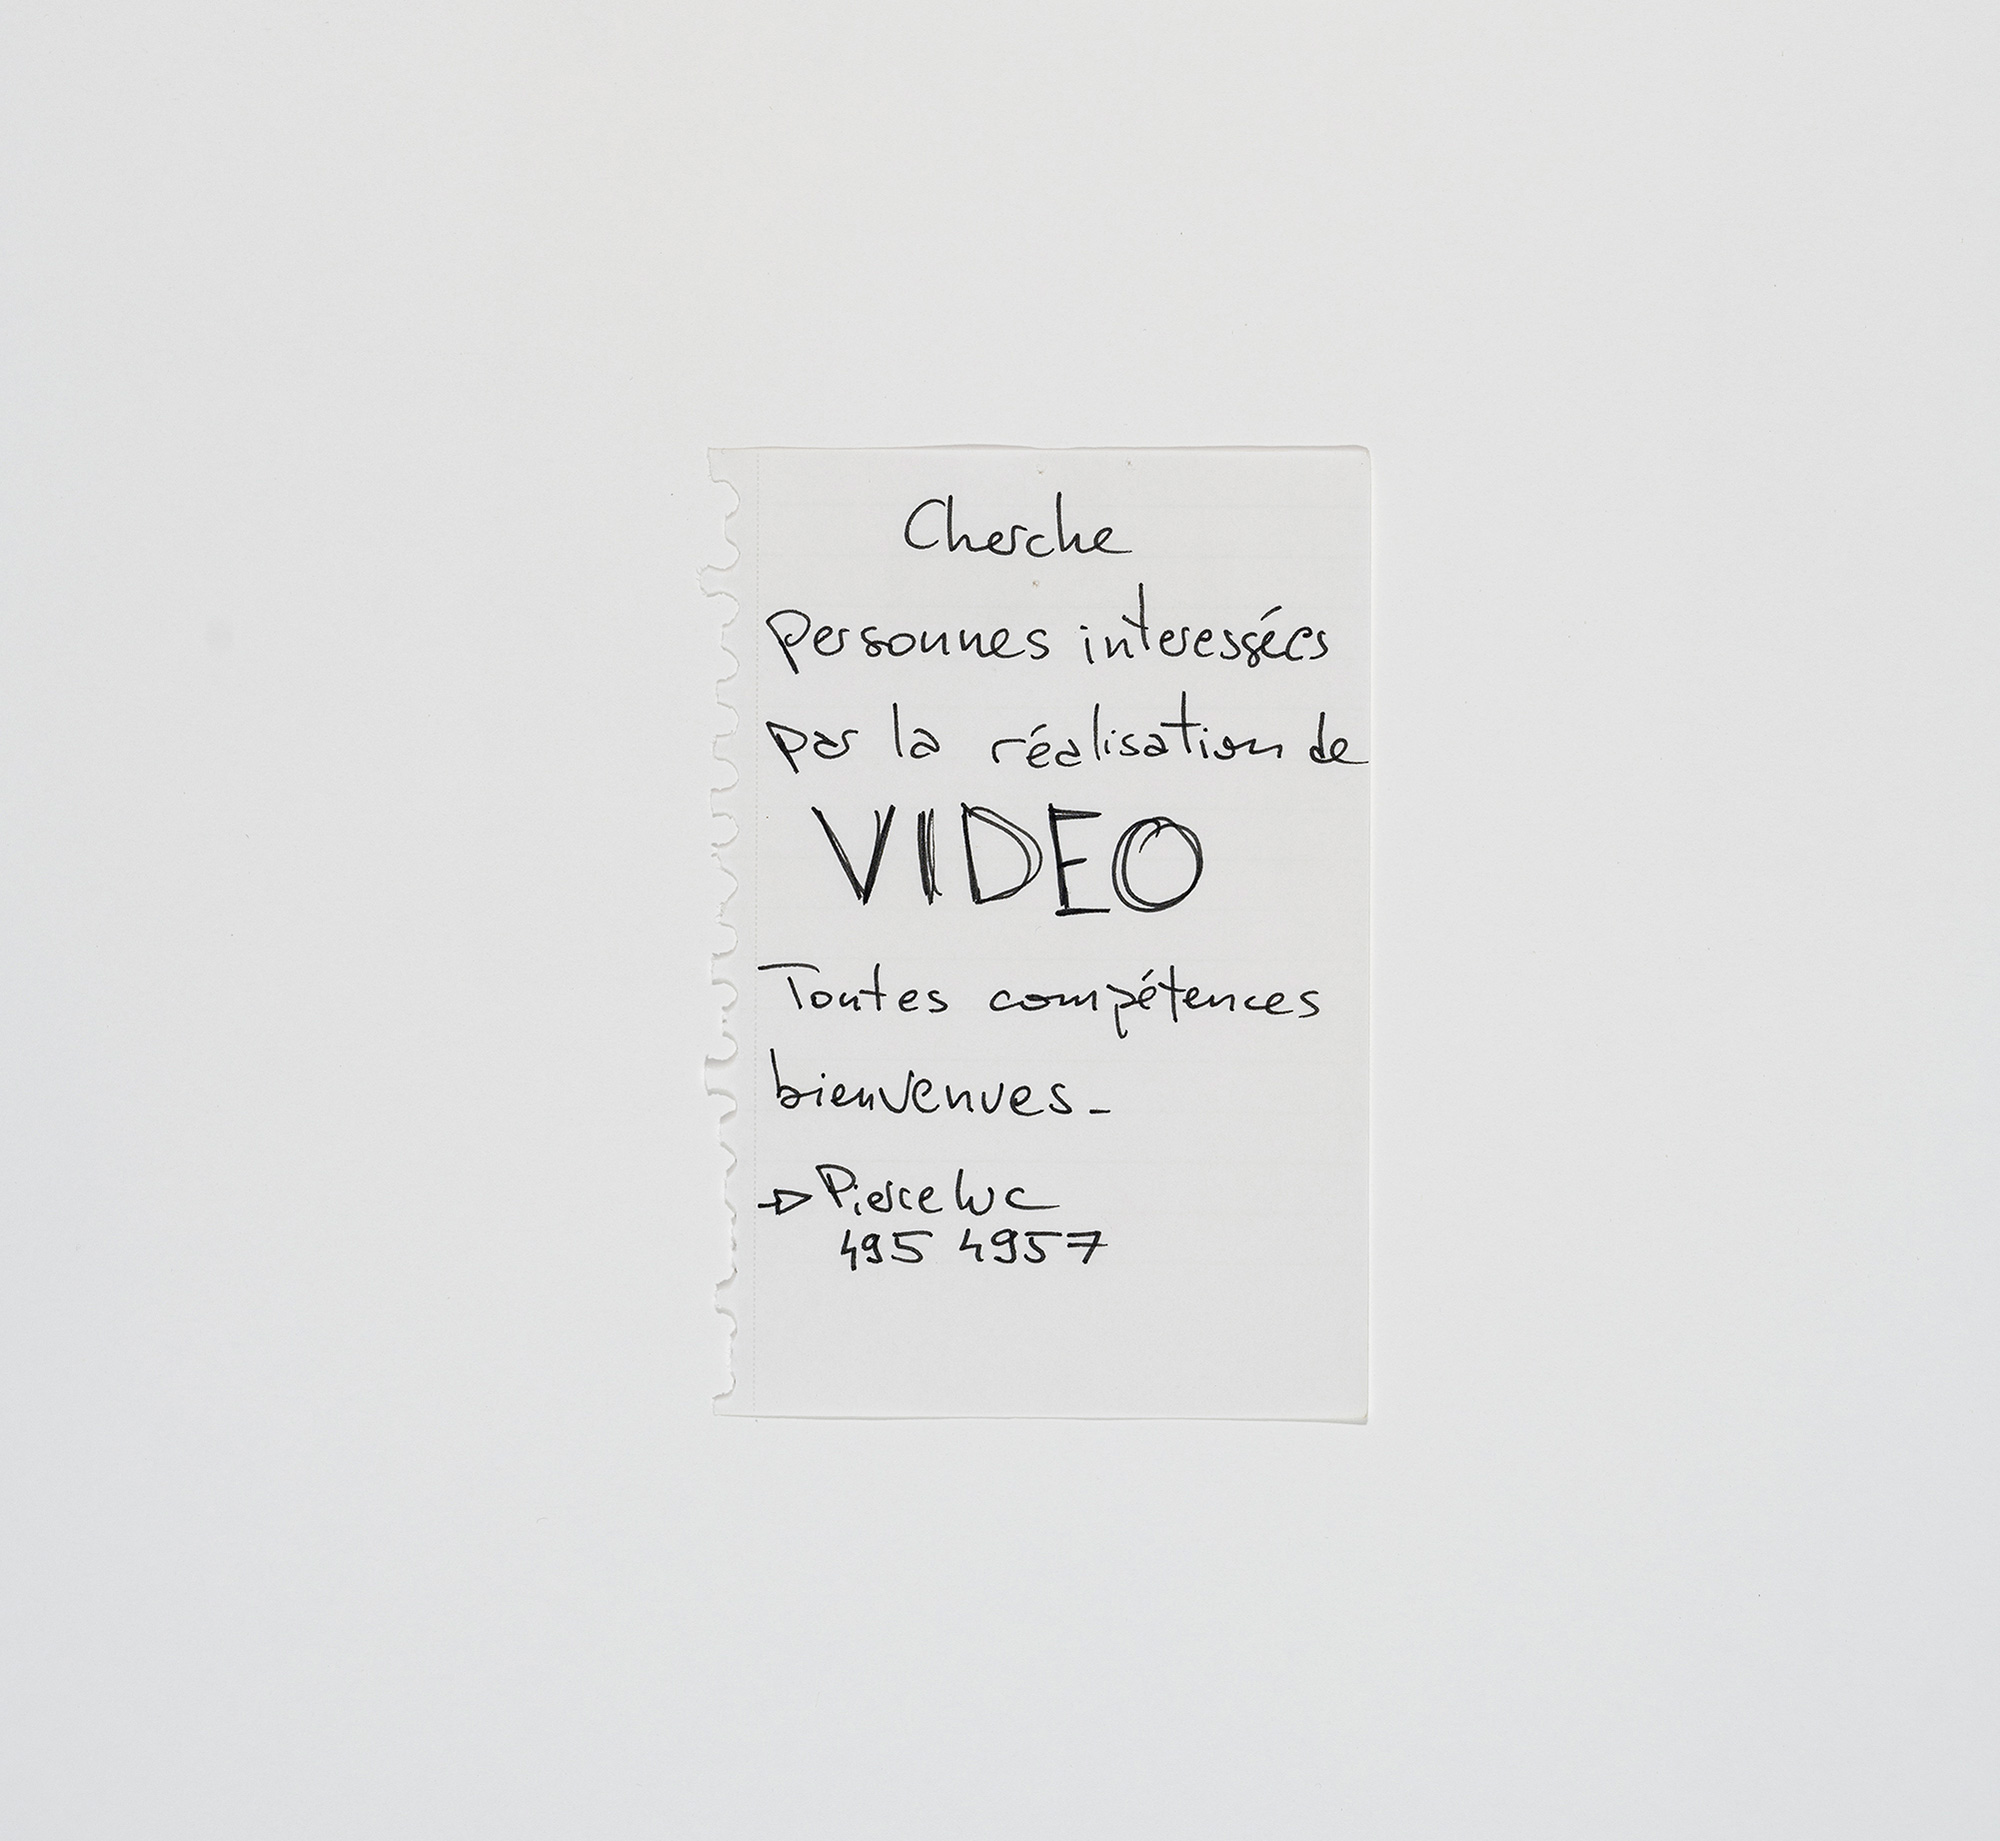 Cherche
personnes interessées
par la réalisation de
VIDEO
Toutes compétences
bienvenues_
→ Pierre Luc
495 4957